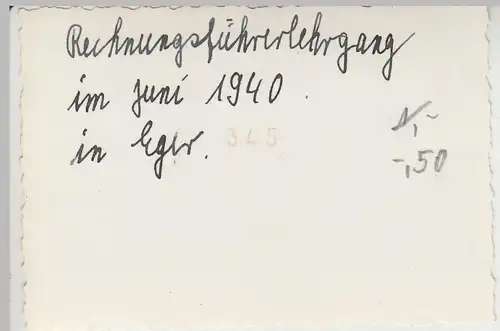 Rechnungsführerlehrgang
im Juni 1940.
in Eger. 345
1,-
-,50